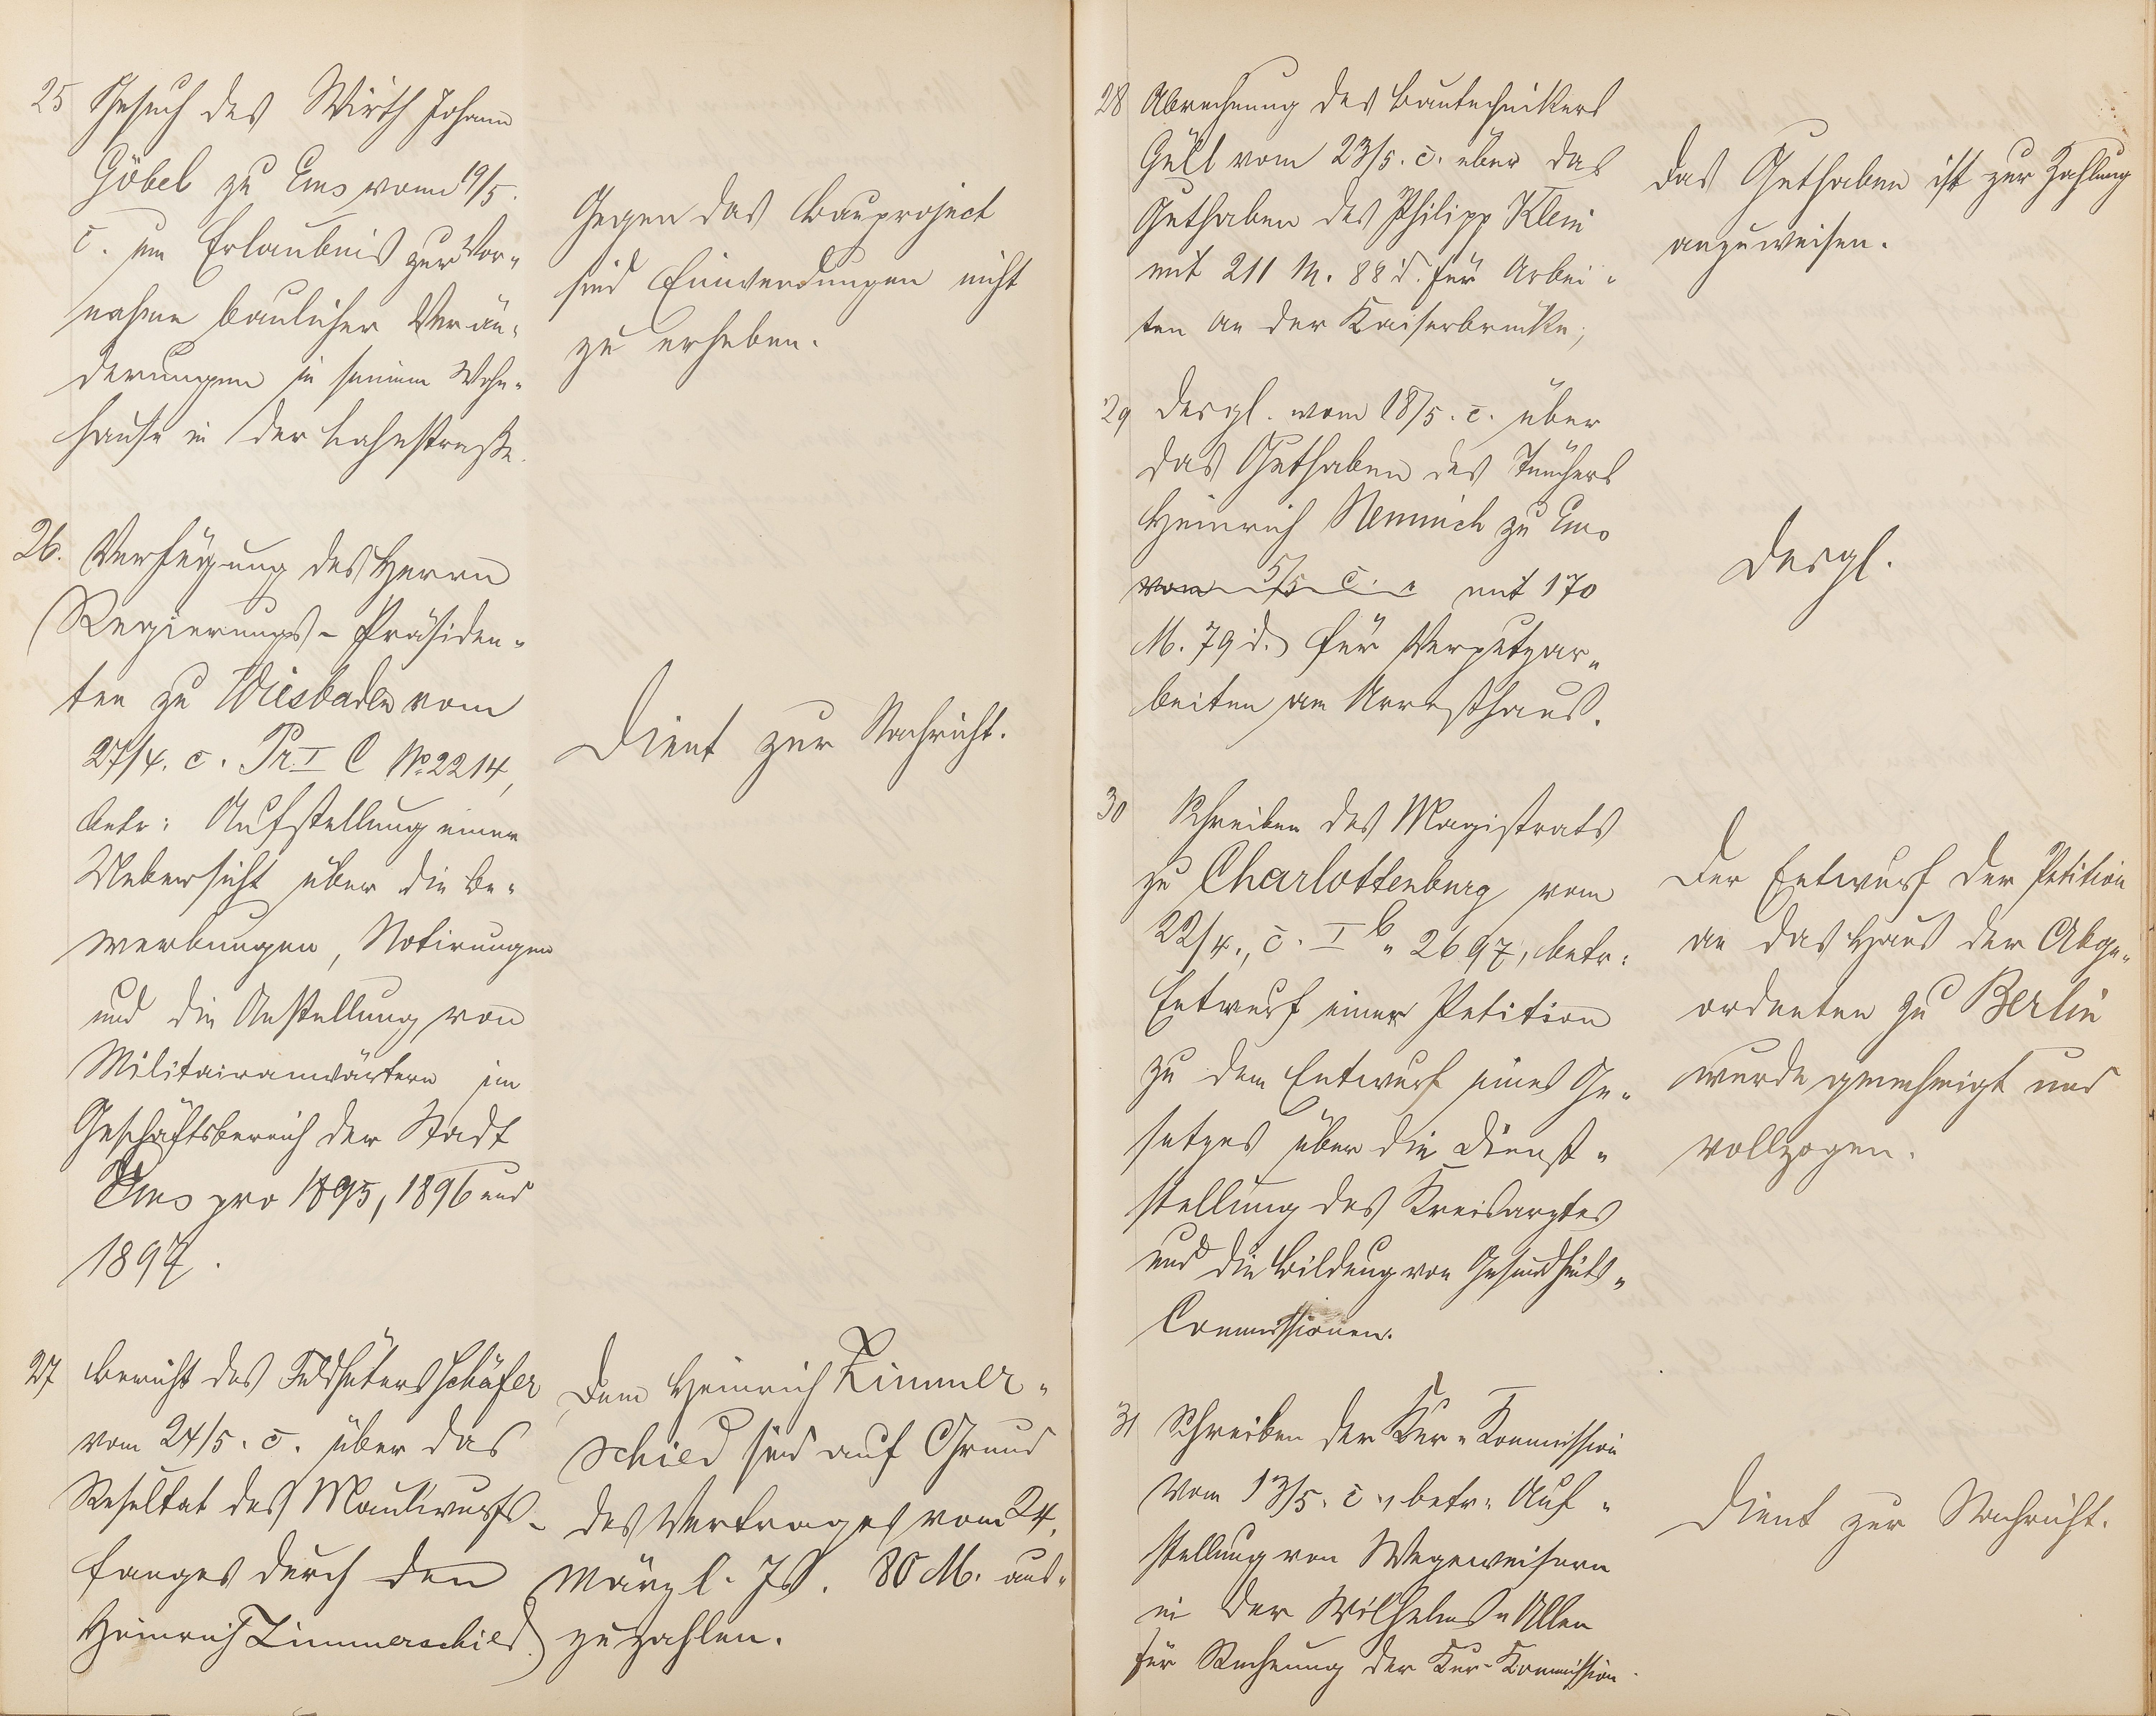 25 Gesuch des Wirth Johann
Göbel zu Ems vom 19/5.
c. um Erlaubniß zur Vor-
nahme baulicher Verän-
derungen in seinem Wohn-
hause in der Lahnstraße.
Gegen das Bauproject
sind Einwendungen nicht
zu erheben.
26. Verfügung des Herrn
Regierungs-Präsiden-
ten zu Wiesbaden vom
27/4. c. Pr. I C No 2214,
betr: Aufstellung einer
Uebersicht über die Be-
werbungen, Notirungen
und die Anstellung von
Militairanwärtern im
Geschäftsbereich der Stadt
Ems pro 1895, 1896 und
1897.
Dient zur Nachricht.
27 Bericht des Feldhüters Schäfer
vom 24/5. c. über das
Resultat des Maulwurfs-
fanges durch den
Heinrich Zimmerschied.
Dem Heinrich Zimmer-
schied sind auf Grund
des Vertrages vom 24.
März l. Js. 80 M. aus-
zuzahlen.
28 Abrechnung des Bautechnikers
Güll vom 23/5. c. über das
Guthaben des Philipp Klein
mit 211 M. 88 d. für Arbei-
ten an der Kaiserbrücke;
Das Guthaben ist zur Zahlung
anzuweisen.
29 Desgl. vom 18/5. c. über
das Guthaben des Tünchers
Heinrich Nemnich zu Ems
vom 5/5 c. mit 170
M. 79 d. für Verputzar-
beiten am Arresthaus.
Desgl.
30 Schreiben des Magistrats
zu Charlottenburg vom
22/4., c. I b. 2697, betr:
Entwurf einer Petition
zu dem Entwurf eines Ge-
setzes über die Dienst-
stellung des Kreisarztes
und die Bildung von Gesundheits-
Commissionen.
Der Entwurf der Petition
an das Haus der Abge-
ordneten zu Berlin
wurde genehmigt und
vollzogen.
31 Schreiben der Kur-Kommission
vom 13/5. c., betr. Auf-
stellung von Wegeweisern
in der Wilhelms-Allee
für Rechnung der Kur-Kommission.
Dient zur Nachricht.